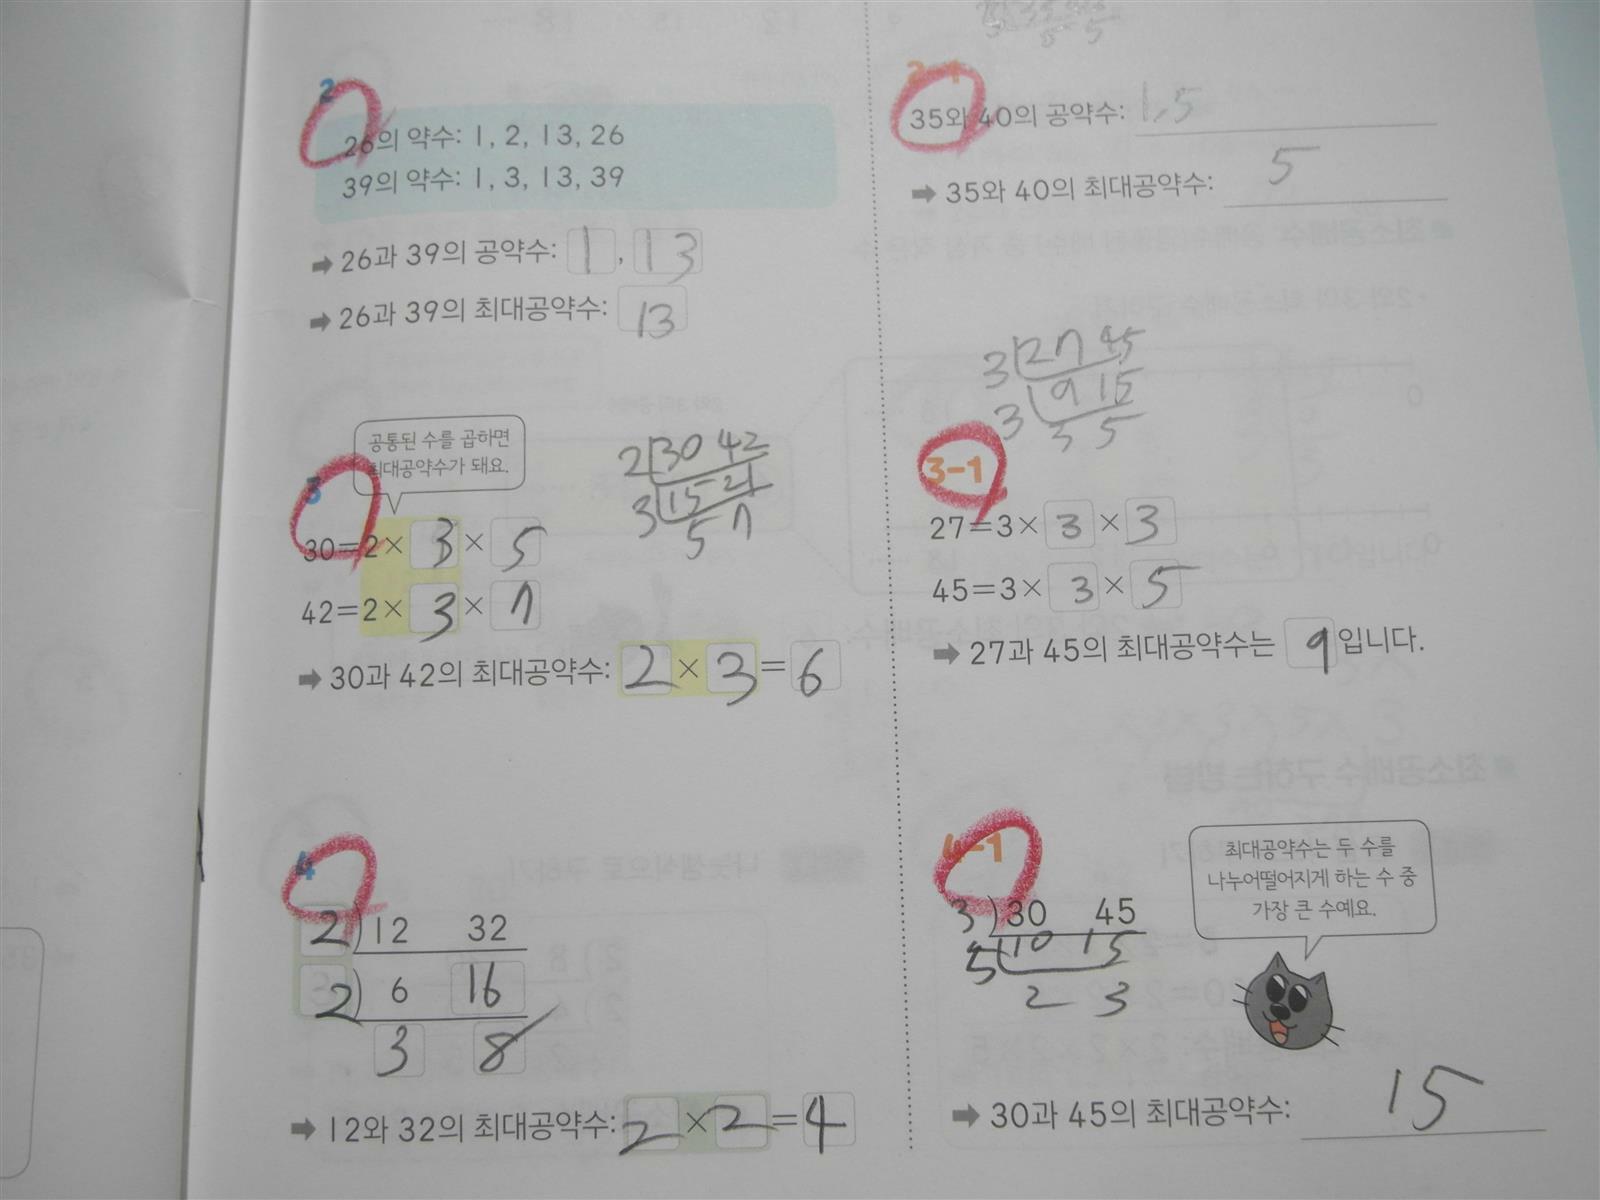 2
26의 약수: 1, 2, 13, 26
39의 약수: 1, 3, 13, 39
➡ 26과 39의 공약수: 1, 13
➡ 26과 39의 최대공약수: 13
2-1
35와 40의 공약수: 1, 5
➡ 35와 40의 최대공약수: 5
3
공통된 수를 곱하면
최대공약수가 돼요.
2 30 42
3 15 21
5 7
30=2×3×5
42=2×3×7
➡ 30과 42의 최대공약수: 2×3=6
3 27 45
3 9 15
3 5
3-1
27=3×3×3
45=3×3×5
➡ 27과 45의 최대공약수는 9입니다.
4
2)12 32
2)6 16
3 8
➡ 12와 32의 최대공약수: 2×2=4
4-1
최대공약수는 두 수를
나누어떨어지게 하는 수 중
가장 큰 수예요.
3)30 45
5 10 15
2 3
➡ 30과 45의 최대공약수: 15